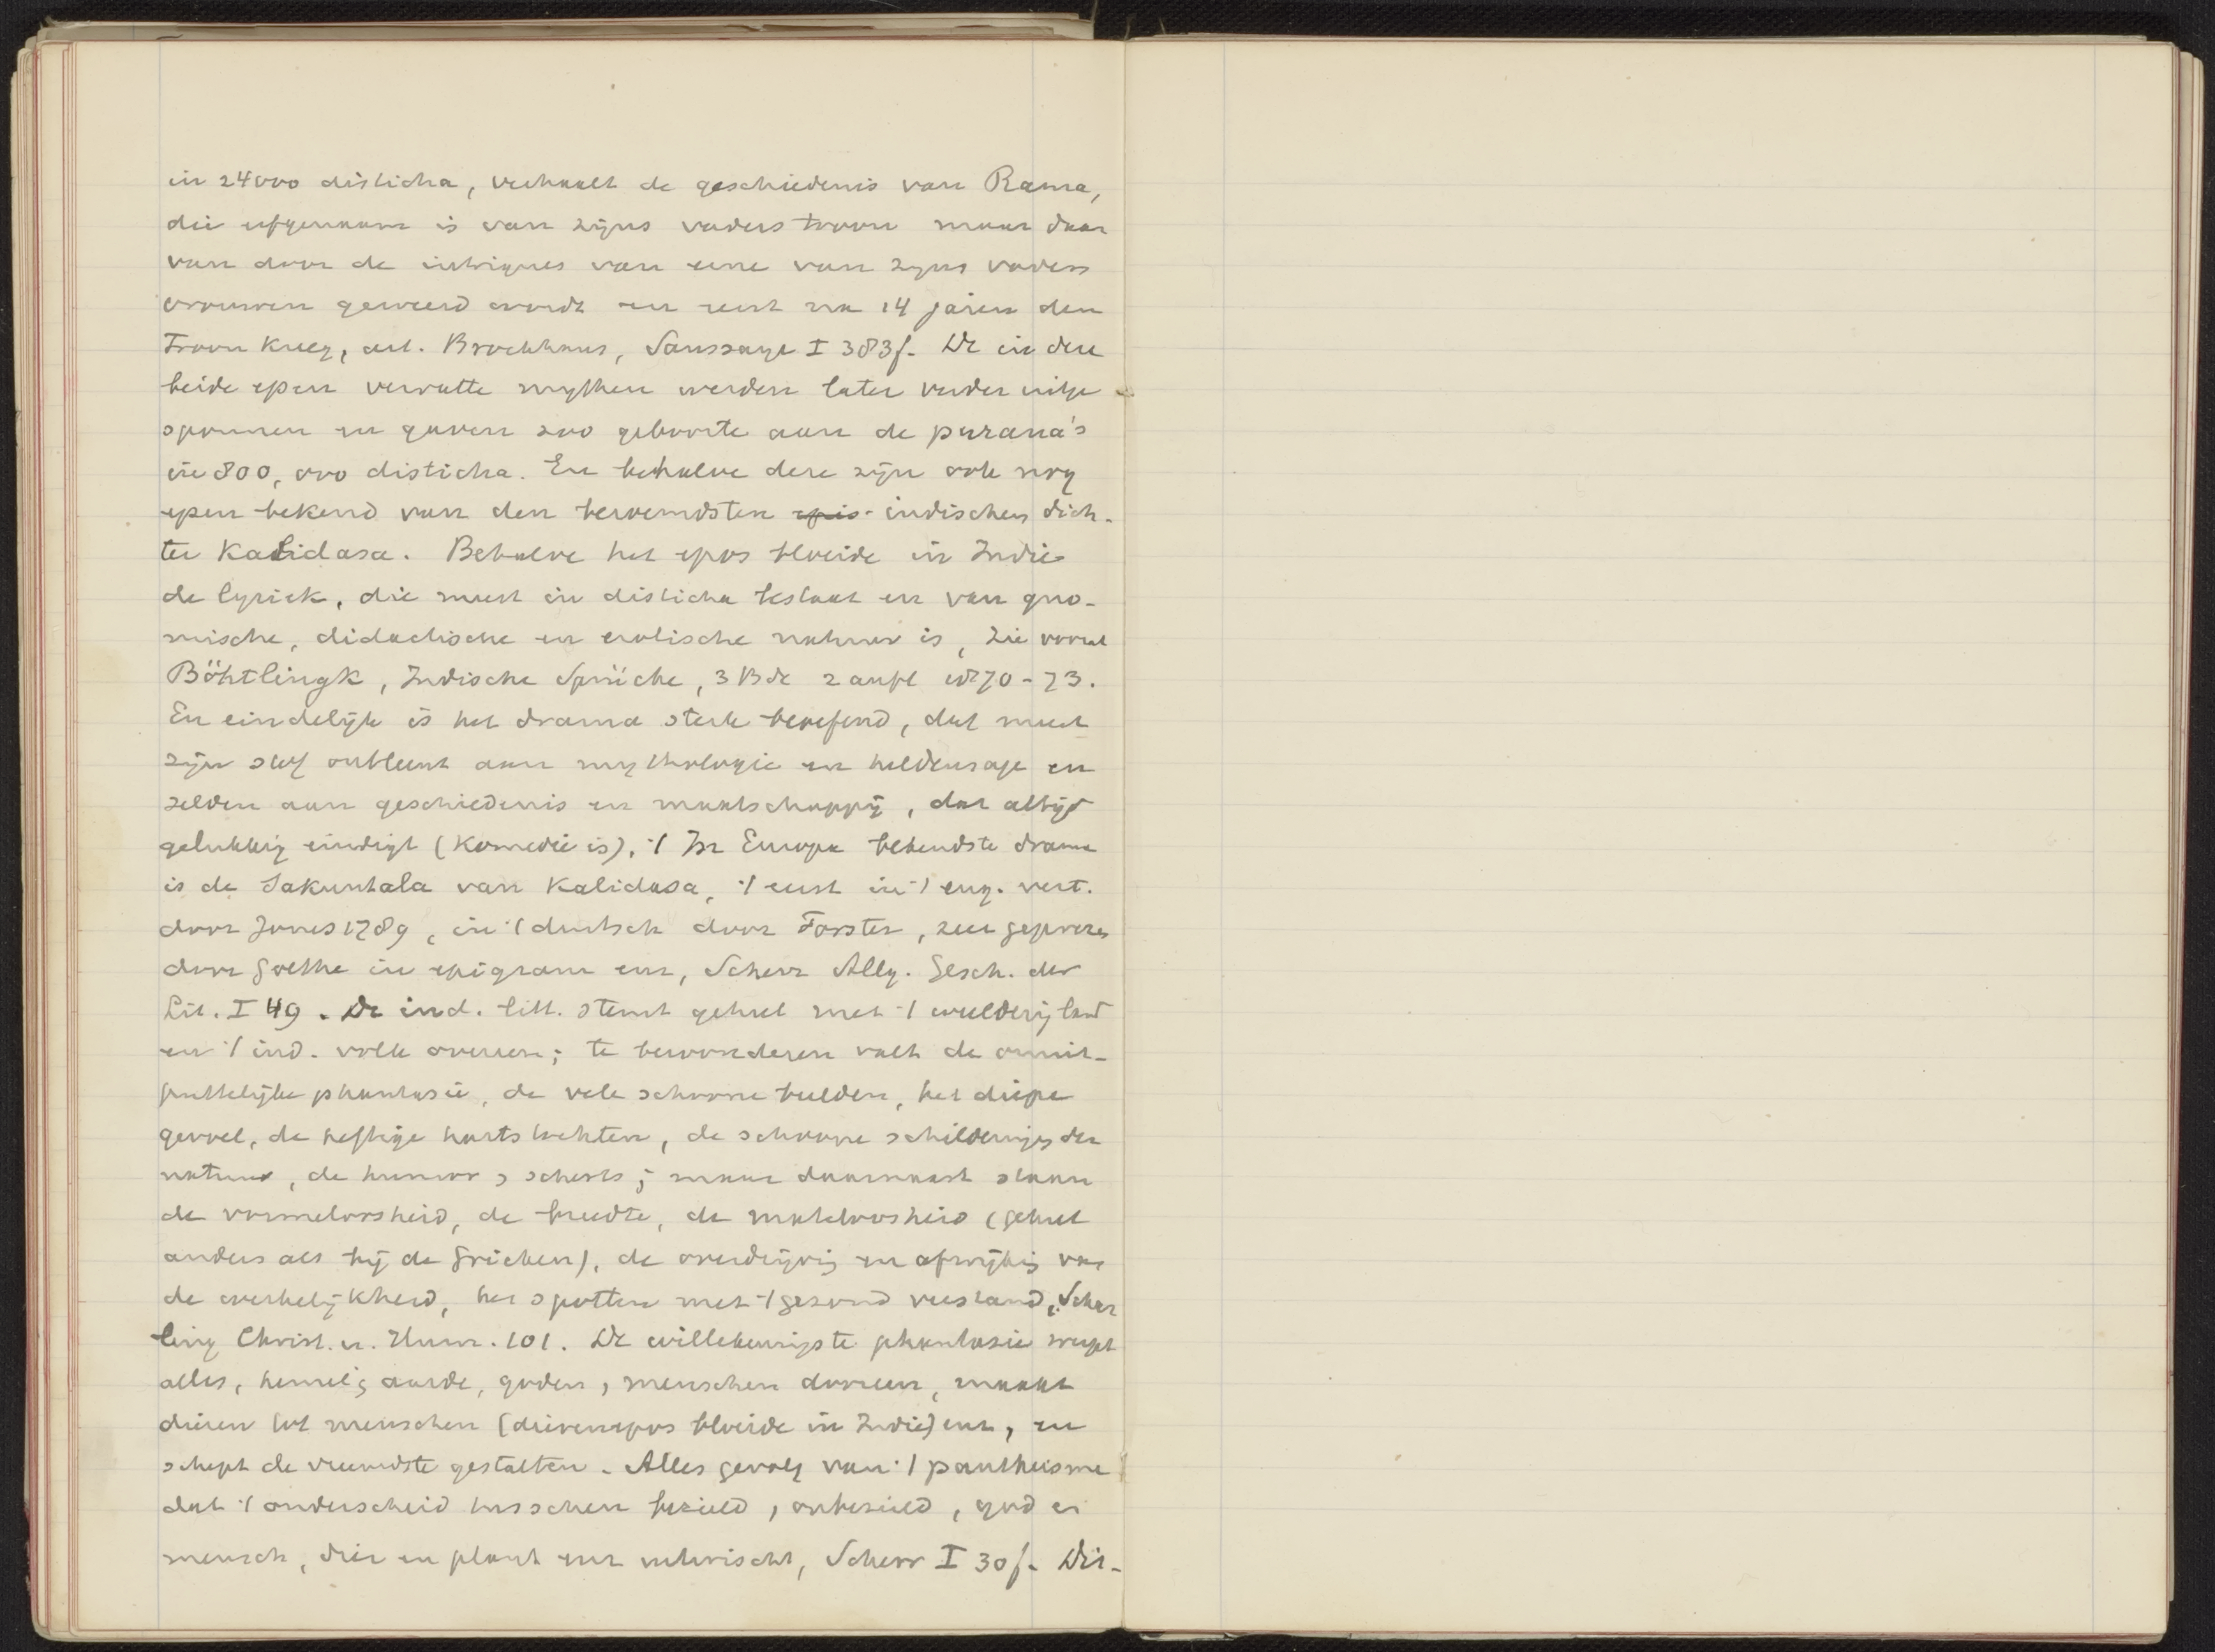 in 24000 disticha, verhaalt de geschiedenis van Rama,
die erfgenaam is van zijns vaders troon maar daar
van door de intriques van eene van zijns vaders
vrouwen geweerd wordt en eerst na 14 jaren den
Troon kreeg, art. Brockhaus, Saussaye I 383f. De in deze
beide epen vervatte mythen werden later verder uitge
sponnen en gaven zoo geboorte aan de purana's
in 800,000 disticha. En behalve deze zijn ook nog
epen bekend van den beroemdsten epis- indischen dich-
ter Kalidasa. Behalve het epos bloeide in Indie
de lyriek, die meest in disticha bestaat en van gno-
mische, didactische en erotische natuur is, zie vooral
Böhtlingk, Indische Sprüche, 3 Bde 2 aufl 1870-73.
En eindelijk is het drama sterk beoefend, dat meest
zijn stof ontleent aan mythologie en heldensage en
zelden aan geschiedenis en maatschappij, dat altijd
gelukkig eindigt (Komedie is), 't In Europa bekendste drama
is de Sakuntala van Kalidasa, 't eerst in 't eng. vert.
door Jones 1789, in 't duitsch door Forster, zeer geprezen
door Goethe in epigram enz, Scherr Allg. Gesch. der
Lit. I 49. De ind. litt. stemt geheel met 't weelderig land
en 't ind. volk overeen; te bewonderen valt de onuit-
puttelijke phantasie, de vele schoone beelden, het diepe
gevoel, de heftige hartstochten, de schoone schilderingen der
natuur, de humor, scherts; maar daarnaast staan
de vormeloosheid, de breedte, de mateloosheid (geheel
anders als bij de Grieken), de overdrijving en afwijking van
de werkelijkheid, het spotten met 't gezond verstand, Schar
ling Christ. u. Hum. 101. De willekeurigste phantasie werpt
alles, hemel, aarde, goden, menschen dooreen, maakt
dieren tot menschen (dierenepos bloeide in Indie) enz, en
schept de vreemdste gestalten. Alles gevolg van 't pantheisme
dat 't onderscheid tusschen bezield, onbezield, god en
mensch, dier en plant enz uitwischt, Scherr I 30f. Dit-